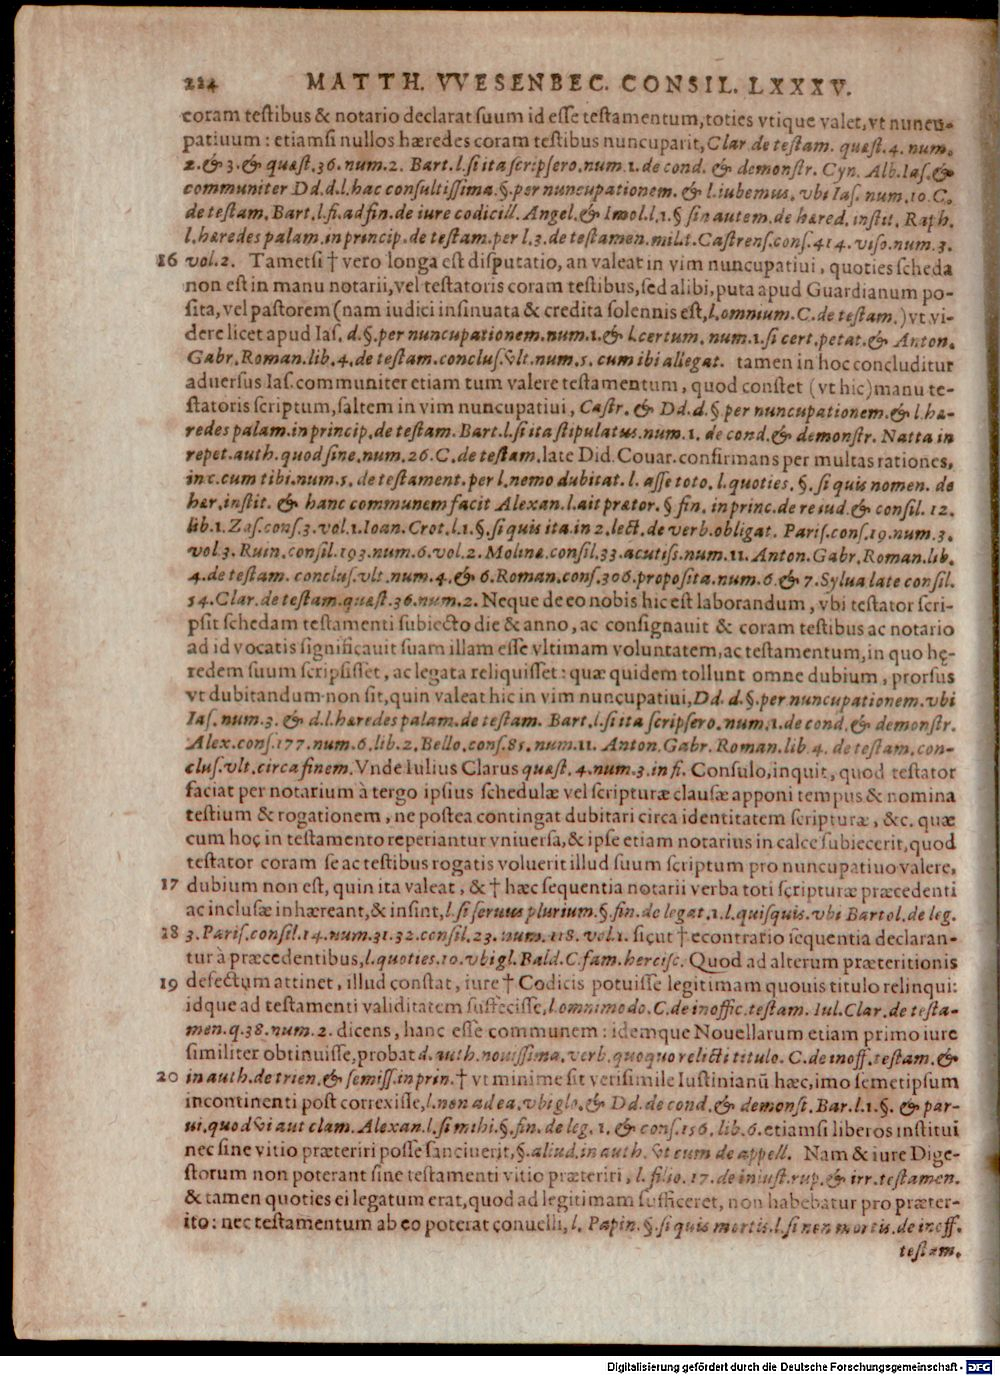 224 MATTH. VVESENBEC. CONSIL. LXXXV.
coram testibus & notario declarat suum id esse testamentum, toties vtique valet, vt nuncu-
patiuum: etiamsi nullos hæredes coram testibus nuncuparit, Clar. de testam. quæst. 4. num.
2. & 3. & quæst. 36. num. 2. Bart. l. si ita scripsero. num. 1. de cond. & demonstr. Cyn. Alb. Ias. &
communiter Dd. d. l. hac consultissima. §. per nuncupationem. & l. iubemus. vbi Ias. num. 10. C.
de testam. Bart. l. fi. ad fin. de iure codicill. Angel. & Imol. l. 1. § sin autem. de hæred. instit. Raph.
l. hæredes palam. in princip. de testam. per l. 3. de testamen. milit. Castrens. cons. 414. viso. num. 3.
16 vol. 2. Tametsi † vero longa est disputatio, an valeat in vim nuncupatiui, quoties scheda
non est in manu notarii, vel testatoris coram testibus, sed alibi, puta apud Guardianum po-
sita, vel pastorem (nam iudici insinuata & credita solennis est, l. omnium. C. de testam.) vt vi-
dere licet apud Ias. d. §. per nuncupationem. num. 1. & l. certum. num. 1. si cert. petat. & Anton.
Gabr. Roman. lib. 4. de testam. conclus. vlt. num. 5. cum ibi allegat. tamen in hoc concluditur
aduersus Ias. communiter etiam tum valere testamentum, quod constet (vt hic) manu te-
statoris scriptum, saltem in vim nuncupatiui, Castr. & Dd. d. §. per nuncupationem. & l. hæ-
redes palam. in princip. de testam. Bart. l. si ita stipulatus. num. 1. de cond. & demonstr. Natta in
repet. auth. quod sine. num. 26. C. de testam. late Did. Couar. confirmans per multas rationes,
in c. cum tibi. num. 5. de testament. per l. nemo dubitat. l. asse toto. l. quoties. §. si quis nomen. de
hær. instit. & hanc communem facit Alexan. l. ait prætor. § fin. in princ. de re iud. & consil. 12.
lib. 1. Zas. cons. 3. vol. 1. Ioan. Crot. l. 1. §. si quis ita. in 2. lect. de verb. obligat. Paris. cons. 19. num. 3.
vol. 3. Ruin. consil. 193. num. 6. vol. 2. Molinæ. consil. 33. acutiss. num. 11. Anton. Gabr. Roman. lib.
4. de testam. conclus. vlt. num. 4. & 6. Roman. cons. 306. proposita. num. 6. & 7. Sylua late consil.
54. Clar. de testam. quæst. 36. num. 2. Neque de eo nobis hic est laborandum, vbi testator scri-
psit schedam testamenti subiecto die & anno, ac consignauit & coram testibus ac notario
ad id vocatis significauit suam illam esse vltimam voluntatem, ac testamentum, in quo hę-
redem suum scripsisset, ac legata reliquisset: quæ quidem tollunt omne dubium, prorsus
vt dubitandum non sit, quin valeat hic in vim nuncupatiui, Dd. d. §. per nuncupationem. vbi
Ias. num. 3. & d. l. hæredes palam. de testam. Bart. l. si ita scripsero. num. 1. de cond. & demonstr.
Alex. cons. 177. num. 6. lib. 2. Bello. cons. 85. num. 11. Anton. Gabr. Roman. lib. 4. de testam. con-
clus. vlt. circa finem. Vnde Iulius Clarus quæst. 4. num. 3. in fi. Consulo, inquit, quod testator
faciat per notarium à tergo ipsius schedulæ vel scripturæ clausæ apponi tempus & nomina
testium & rogationem, ne postea contingat dubitari circa identitatem scripturæ, &c. quæ
cum hoc in testamento reperiantur vniuersa, & ipse etiam notarius in calce subiecerit, quod
testator coram se ac testibus rogatis voluerit illud suum scriptum pro nuncupatiuo valere,
17 dubium non est, quin ita valeat, & † hæc sequentia notarii verba toti scripturæ præcedenti
ac inclusæ inhæreant, & insint, l. si seruus plurium. §. fin. de legat. 1. l. quisquis. vbi Bartol. de leg.
18 3. Paris. consil. 14. num. 31. 32. consil. 23. num. 118. vol. 1. sicut † econtrario sequentia declaran-
tur à præcedentibus, l. quoties. 10. vbi gl. Bald. C. fam. hercisc. Quod ad alterum præteritionis
19 defectum attinet, illud constat, iure † Codicis potuisse legitimam quouis titulo relinqui:
idque ad testamenti validitatem suffecisse, l. omnimodo. C. de inoffic. testam. Iul. Clar. de testa-
men. q. 38. num. 2. dicens, hanc esse communem: idemque Nouellarum etiam primo iure
similiter obtinuisse, probat d. auth. nouissima. verb. quoquo relicti titulo. C. de inoff. testam. &
20 in auth. de trien. & semiss. in prin. † vt minime sit verisimile Iustinianũ hæc, imo semetipsum
incontinenti post correxisse, l. non ad ea. vbi glo. & Dd. de cond. & demonst. Bar. l. 1. §. & par-
ui. quod vi aut clam. Alexan. l. si mihi. §. fin. de leg. 1. & cons. 156. lib. 6. etiamsi liberos institui
nec sine vitio præteriri posse sanciuerit, §. aliud. in auth. vt cum de appell. Nam & iure Dige-
storum non poterant sine testamenti vitio præteriri, l. filio. 17. de iniust. rup. & irr. testamen.
& tamen quoties ei legatum erat, quod ad legitimam sufficeret, non habebatur pro præter-
ito: nec testamentum ab eo poterat conuelli, l. Papin. §. si quis mortis. l. si non mortis. de inoff.
testam.
Digitalisierung gefördert durch die Deutsche Forschungsgemeinschaft - DFG